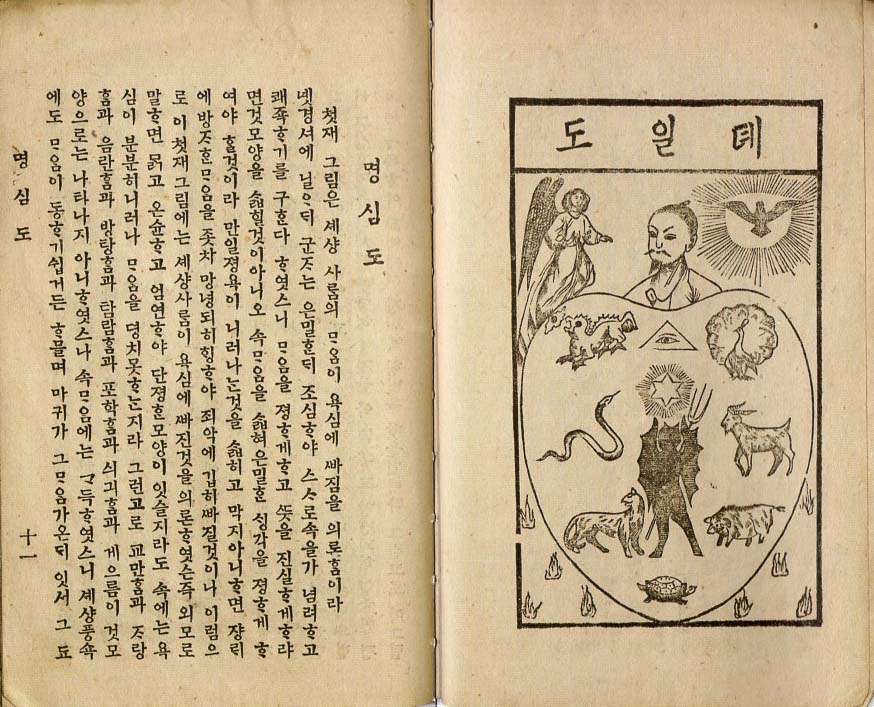 뎨일도
명심도
첫재 그림은 셰샹 사ᄅᆞᆷ의 ᄆᆞᄋᆞᆷ이 욕심에 ᄲᅡ짐을 의론홈이라
녯경셔에 닐ᄋᆞᄃᆡ 군ᄌᆞ는 은밀ᄒᆞᆫᄃᆡ 조심ᄒᆞ야 스ᄉᆞ로속을가 념려ᄒᆞ고
쾌족ᄒᆞ기를 구ᄒᆞᆫ다 ᄒᆞ엿스니 ᄆᆞᄋᆞᆷ을 졍ᄒᆞ게ᄒᆞ고 ᄯᅳᆺ을 진실ᄒᆞ게ᄒᆞ랴
면것모양을 ᄉᆞᆲ힐것이아니오 속ᄆᆞᄋᆞᆷ을 ᄉᆞᆲ혀은밀ᄒᆞᆫ ᄉᆡᆼ각을 졍ᄒᆞ게 ᄒᆞ
여야 ᄒᆞᆯ것이라 만일졍욕이 니러나ᄂᆞᆫ것을 ᄉᆞᆲ히고 막지아니ᄒᆞ면 쟝ᄅᆡ
에방ᄌᆞᄒᆞᆫᄆᆞᄋᆞᆷ을 좃차 망녕되히ᄒᆡᆼᄒᆞ야 죄악에 깁히ᄲᅡ질것이나 이럼으
로 이첫재그림에는 셰샹사ᄅᆞᆷ이 욕심에 ᄲᅡ진것을의론ᄒᆞ엿슨즉 외모로
말ᄒᆞ면 묽고 온슌ᄒᆞ고 엄연ᄒᆞ야 단졍ᄒᆞᆫ모양이 잇슬지라도 속에는욕
심이 분분히니러나 ᄆᆞᄋᆞᆷ을 뎡치못ᄒᆞᄂᆞᆫ지라 그런고로 교만홈과 ᄌᆞ랑
홈과 음란홈과 방탕홈과 탐람홈과 포학홈과 싀긔홈과 게으름이 것모
양으로는 나타나지 아니ᄒᆞ엿스나 속ᄆᆞᄋᆞᆷ에는 ᄀᆞ득ᄒᆞ엿스니 셰샹풍쇽
에도 ᄆᆞᄋᆞᆷ이 동ᄒᆞ기쉽거든 ᄒᆞ믈며 마귀가 그ᄆᆞᄋᆞᆷ가온ᄃᆡ 잇서 그 됴
명심도 十一